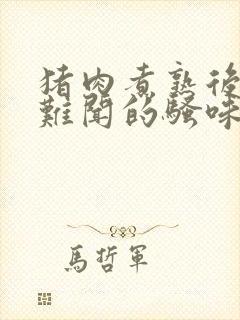 猪肉煮熟後
難聞的騷味
馬哲軍